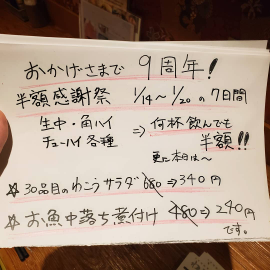 おかげさまで 9周年!
半額感謝祭 1/14〜1/20の7日間
生中・角ハイ
チューハイ各種
⇒ 何杯飲んでも
半額!!
更に本日は〜
☆ 30品目のわこうサラダ 680⇒340円
☆ お魚中落ち煮付け 480⇒240円
です。